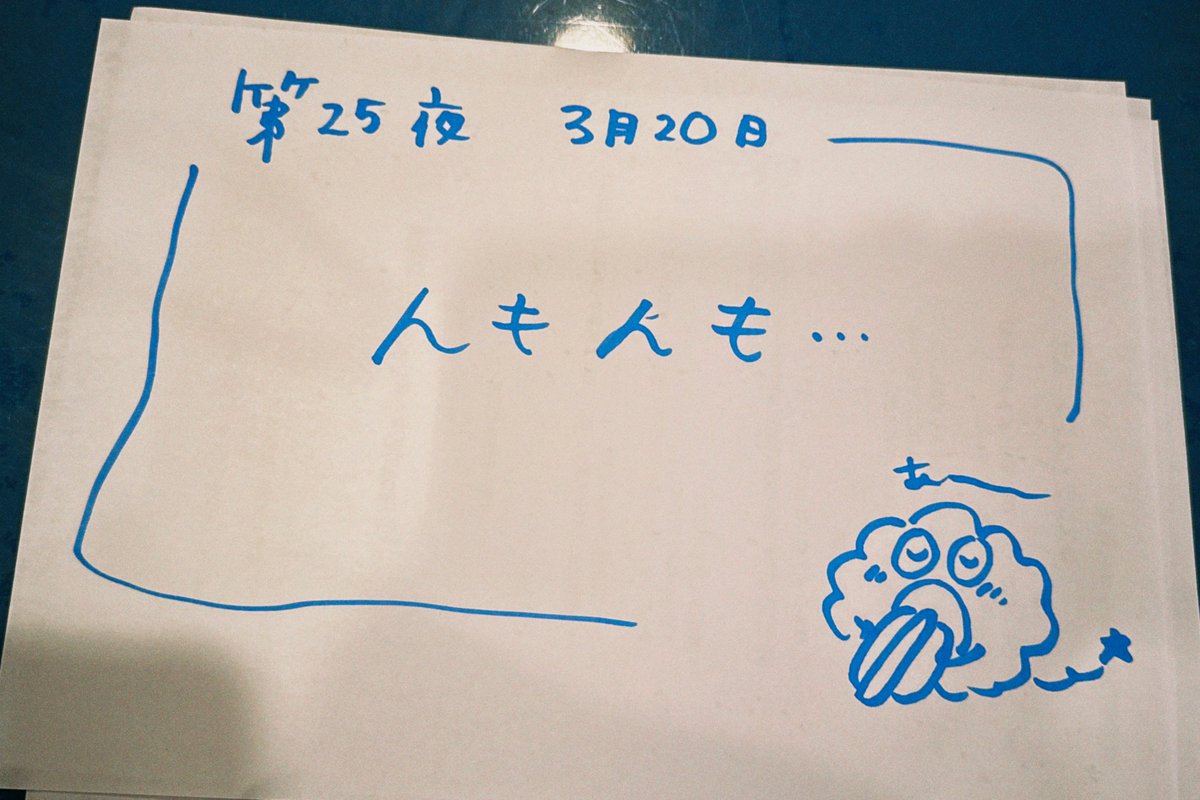 第25夜 3月20日
んもんも…
あ〜